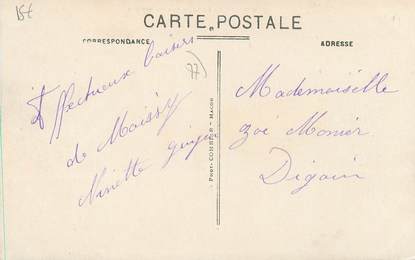 15€
CARTE POSTALE
CORRESPONDANCE
ADRESSE
Affectueux baisers
77)
de Moissy
Ninette
PHOT-COMBIER-MACON
Mademoiselle
Zoé Monier
Digoin